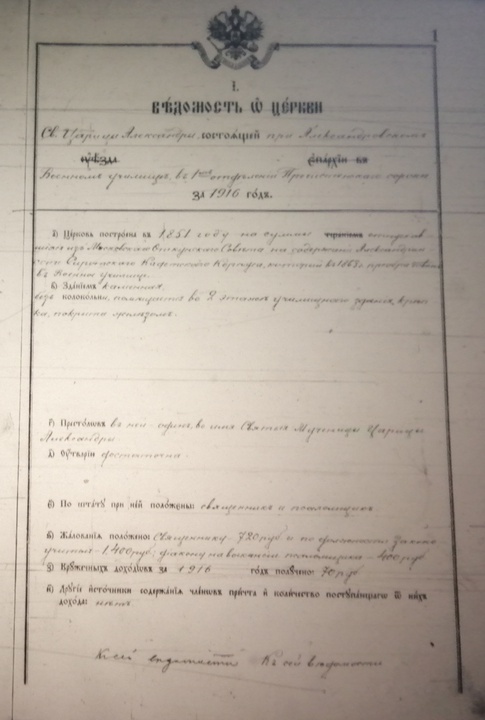 1
I.
ВѢДОМОСТЬ Ѡ ЦЕРКВИ
Св. Царицы Александры, состоящей при Александровскомъ
уѣзда епархіи
Военномъ училищѣ, въ 1мъ отдѣленіи Пречистенскаго сорока
за 1916 годъ.
а) Церковь построена въ 1851 году на суммы
изъ Московскаго Опекунскаго Совѣта на содержаніе Александрин
скаго Сиротскаго Кадетскаго Корпуса, который въ 1863 г.
въ Военное училище.
в) Зданіемъ каменная,
безъ колокольни, помѣщается во 2 этажѣ училищнаго зданія, кры
ша, покрыта желѣзомъ.
г) Престоловъ въ ней - одинъ, во имя Святыя Мученицы Царицы
Александры.
д) Оутварію достаточна.
е) По штату при ней положены: священникъ и псаломщикъ.
ѕ) Жалованья положено: Священнику - 720 руб и по должности Законо
учителя - 1.400 руб; на вакансіи псаломщика - 400 руб
з) Кружечныхъ доходовъ за 1916 годъ получено: 70 руб
и) Другіе источники содержанія членовъ причта и количество поступающаго ѿ нихъ
дохода:
Къ сей вѣдомости Къ сей вѣдомости